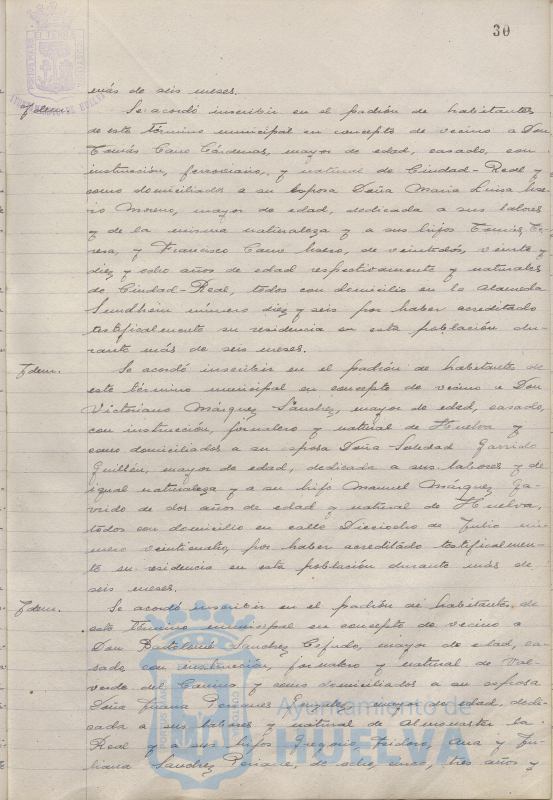 30
más de seis meses.
Idem. Se acordó inscribir en el padrón de habitantes
de este término municipal en concepto de vecino a Don
Tomás Cano Cárdenas, mayor de edad, casado, con
instrucción, ferroviario, y natural de Ciudad-Real y
como domiciliados a su esposa Doña Maria Luisa
rio Moreno, mayor de edad, dedicada a sus labores
y de la misma naturaleza y a sus hijos Tomás, Te-
resa, y Francisco Cano de veintidós, veinte y
diez y ocho años de edad respectivamente y naturales
de Ciudad-Real, todos con domicilio en la Alameda
Sundheim número diez y seis por haber acreditado
testificalmente su residencia en esta población du-
rante más de seis meses.
Idem. Se acordó inscribir en el padrón de habitantes de
este término municipal en concepto de vecino a Don
Victoriano Márquez Sánchez, mayor de edad, casado,
con instrucción, jornalero y natural de Huelva y
como domiciliados a su esposa Doña Soledad Garrido
Guillén, mayor de edad, dedicada a sus labores y de
igual naturaleza y a su hijo Manuel Márquez Ga-
rrido de dos años de edad y natural de Huelva,
todos con domicilio en calle Dieciocho de Julio nú-
mero veinticuatro, por haber acreditado testificalmen-
te su residencia en esta población durante más de
seis meses.
Idem. Se acordó inscribir en el padrón de habitantes de
este término municipal en concepto de vecino a
Don Bartolomé Sanchez Cejudo, mayor de edad, ca-
sado, con instrucción, jornalero y natural de Val-
verde del Camino y como domiciliados a su esposa
Doña Juana mayor de edad, dedi-
cada a sus labores y natural de Almonaster la
Real y a sus hijos Gregorio, Isidoro, Ana y Ju-
liana Sanchez de ocho, cinco, tres años y
Ayuntamiento de
HUELVA